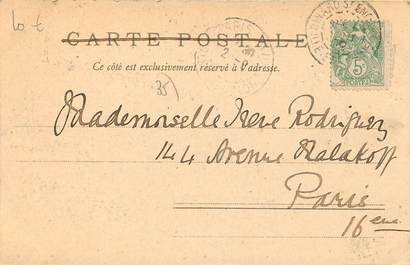 10 €
CARTE POSTALE
Ce côté est exclusivement réservé à l'adresse.
35)
5
Mademoiselle Irene Rodriguez
144 Avenue Malakoff
Paris
16 eme